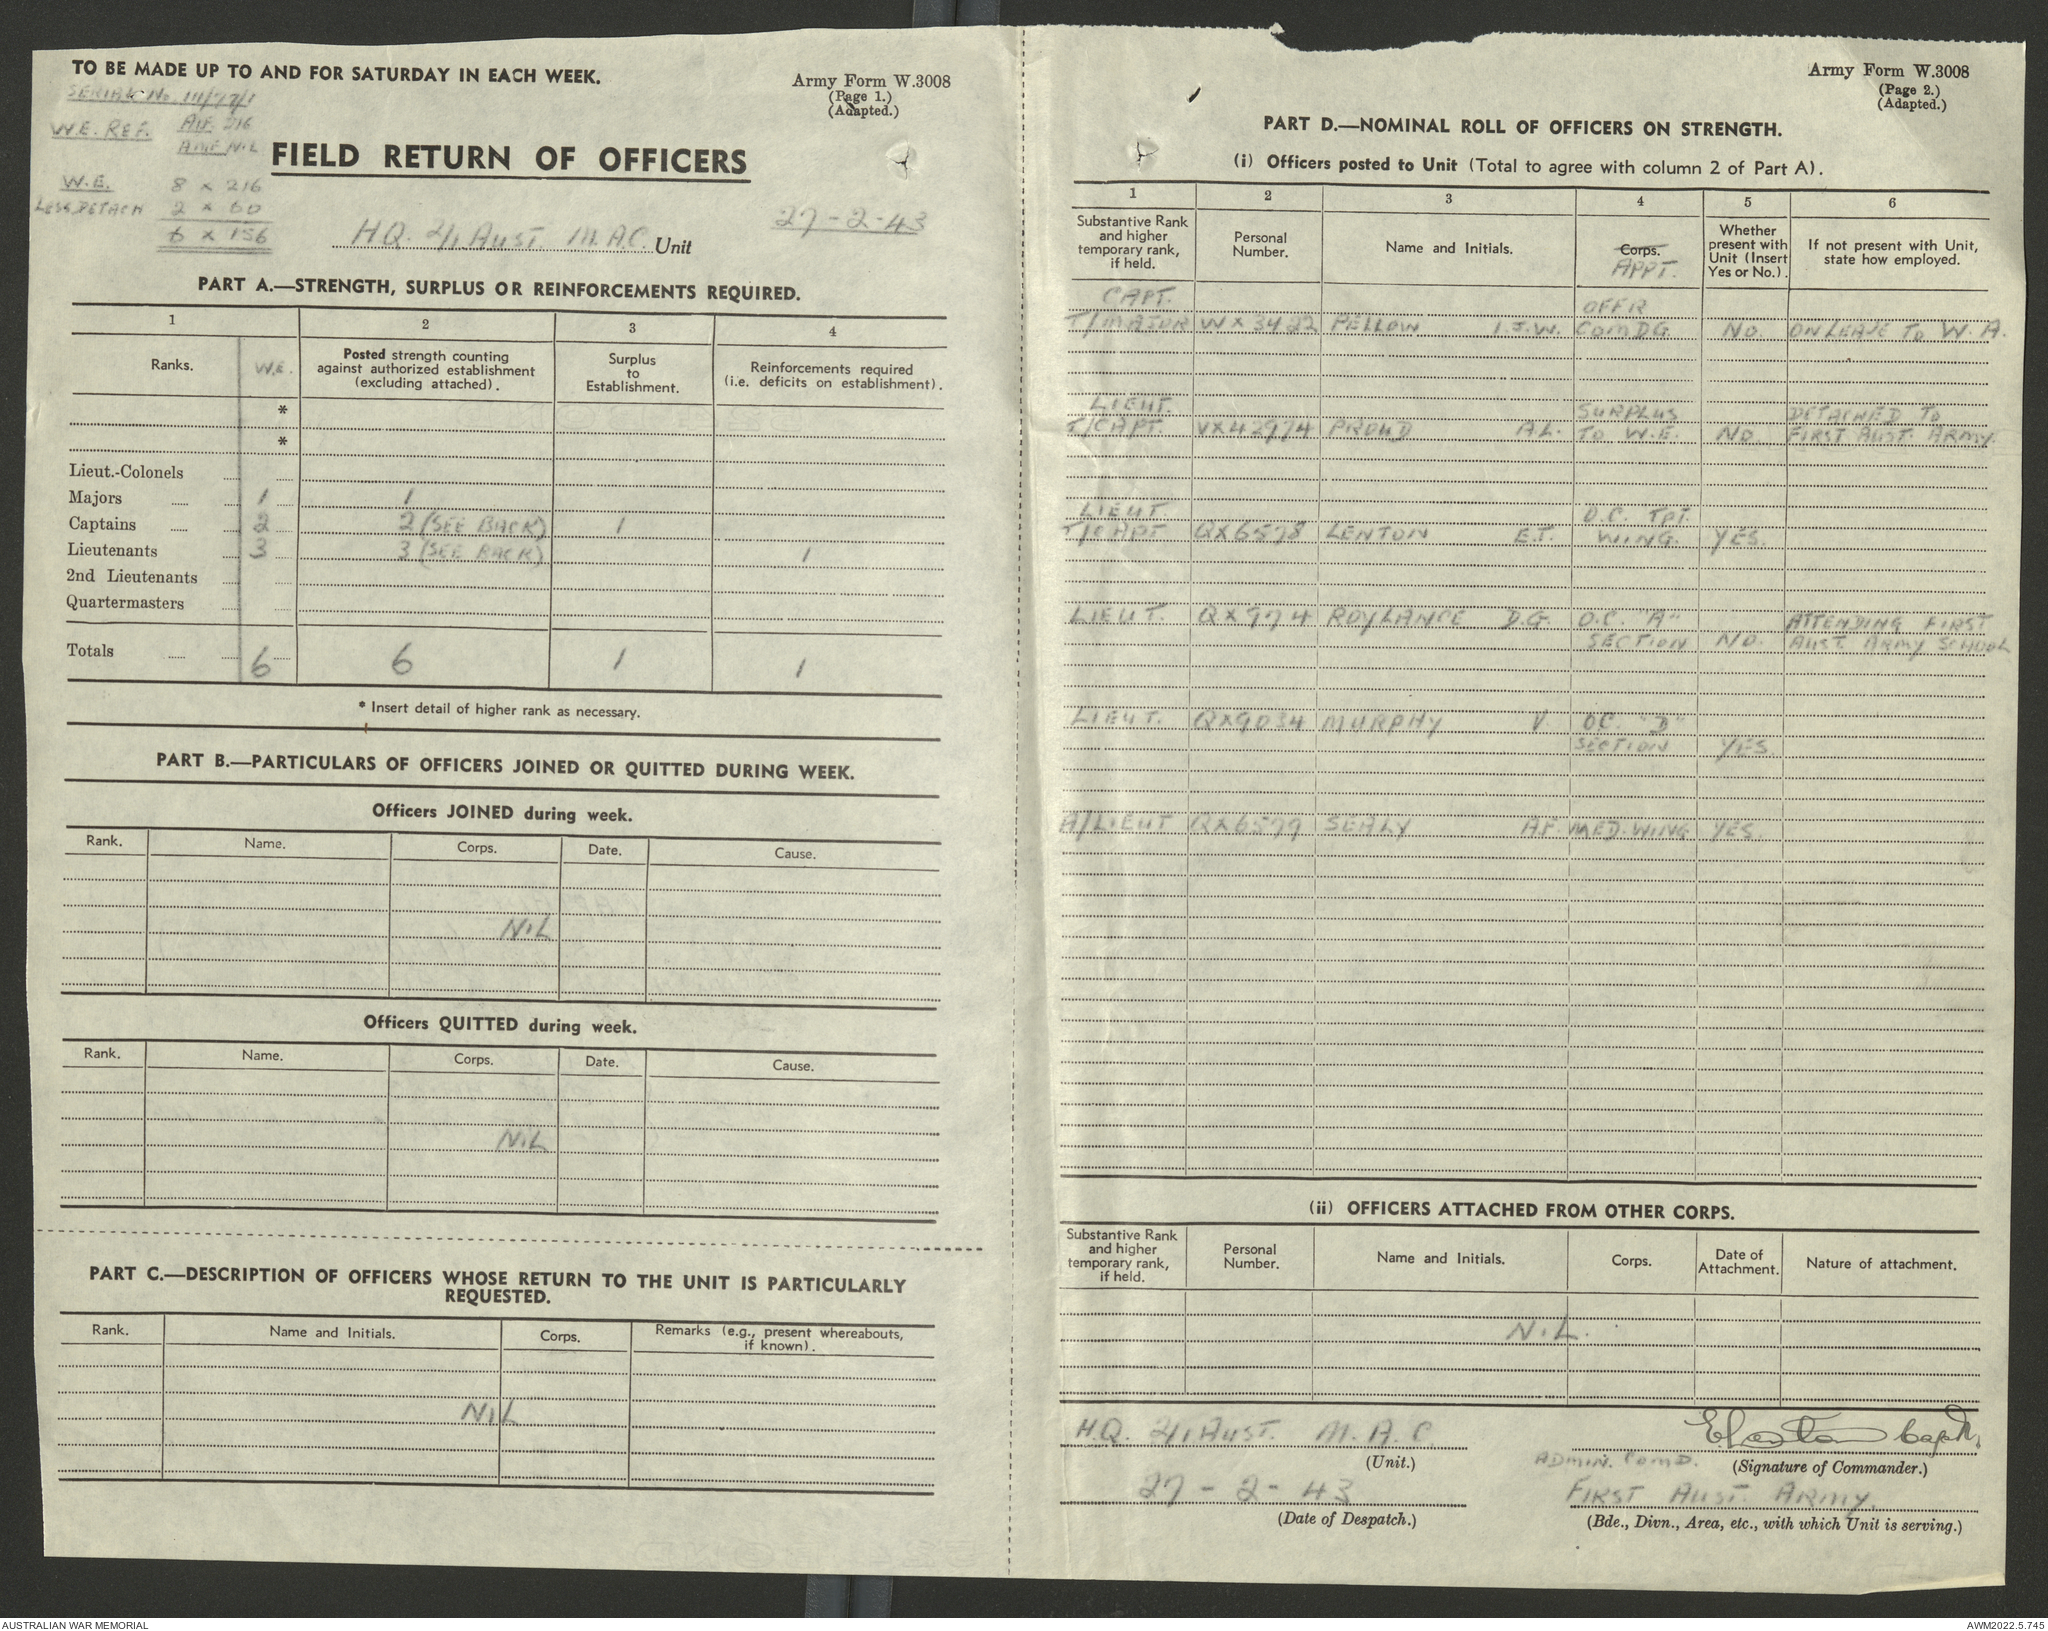 TO BE MADE UP TO AND FOR SATURDAY IN EACH WEEK.
SERIAL No. 111/77/1
W.E. REF. AIF. 216
AMF NIL
Army Form W.3008
(Page 1.)
(Adapted.)
FIELD RETURN OF OFFICERS
W.E. 8 x 216
LESS DETACH 2 x 60
6 x 156
27-2-43
H.Q. 2/1 AUST. M.A.C. Unit
PART A.—STRENGTH, SURPLUS OR REINFORCEMENTS REQUIRED.
1 2 3 4
Ranks. W.E. Posted strength counting against authorized establishment (excluding attached). Surplus to Establishment. Reinforcements required (i.e. deficits on establishment).
*
*
Lieut.-Colonels
Majors 1 1
Captains 2 2 (SEE BACK) 1
Lieutenants 3 3 (SEE BACK) 1
2nd Lieutenants
Quartermasters
Totals 6 6 1 1
* Insert detail of higher rank as necessary.
PART B.—PARTICULARS OF OFFICERS JOINED OR QUITTED DURING WEEK.
Officers JOINED during week.
Rank. Name. Corps. Date. Cause.
NIL
Officers QUITTED during week.
Rank. Name. Corps. Date. Cause.
NIL
PART C.—DESCRIPTION OF OFFICERS WHOSE RETURN TO THE UNIT IS PARTICULARLY
REQUESTED.
Rank. Name and Initials. Corps. Remarks (e.g., present whereabouts, if known).
NIL
Army Form W.3008
(Page 2.)
(Adapted.)
PART D.—NOMINAL ROLL OF OFFICERS ON STRENGTH.
(i) Officers posted to Unit (Total to agree with column 2 of Part A).
1 2 3 4 5 6
Substantive Rank and higher temporary rank, if held. Personal Number. Name and Initials. Corps. APPT. Whether present with Unit (Insert Yes or No.). If not present with Unit, state how employed.
CAPT. OFFR
T/MAJOR WX3422 PELLOW I.J.W. COMDG. NO. ON LEAVE TO W.A.
LIEUT. SURPLUS DETACHED TO
T/CAPT. VX42974 PROUD A.L. TO W.E. NO. FIRST AUST. ARMY.
LIEUT. O.C. TPT.
T/CAPT QX6578 LENTON E.T. WING. YES.
LIEUT. QX974 ROYLANCE D.G. O.C. "A" ATTENDING FIRST
SECTION NO. AUST. ARMY SCHOOL
LIEUT. QX9034 MURPHY V. OC. "D"
SECTION YES.
A/LIEUT QX6579 SEALY A.F. MED. WING YES.
(ii) OFFICERS ATTACHED FROM OTHER CORPS.
Substantive Rank and higher temporary rank, if held. Personal Number. Name and Initials. Corps. Date of Attachment. Nature of attachment.
NIL.
H.Q. 2/1 AUST. M.A.C. E Lenton Capt.
(Unit.) ADMIN. COMD. (Signature of Commander.)
27-2-43 FIRST AUST. ARMY.
(Date of Despatch.) (Bde., Divn., Area, etc., with which Unit is serving.)
AUSTRALIAN WAR MEMORIAL
AWM2022.5.745